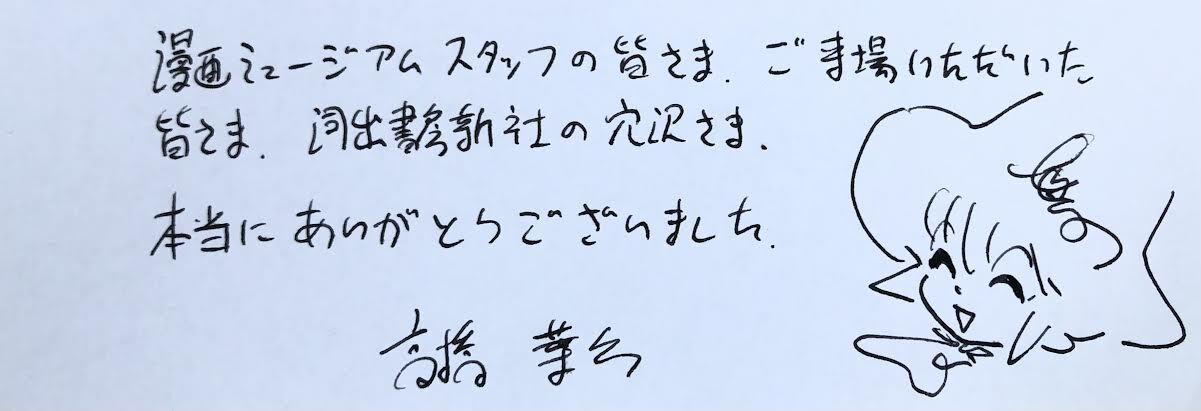 漫画ミュージアムスタッフの皆さま、ご来場いただいた
皆さま、河出書房新社の穴沢さま、
本当にありがとうございました。
高橋葉介